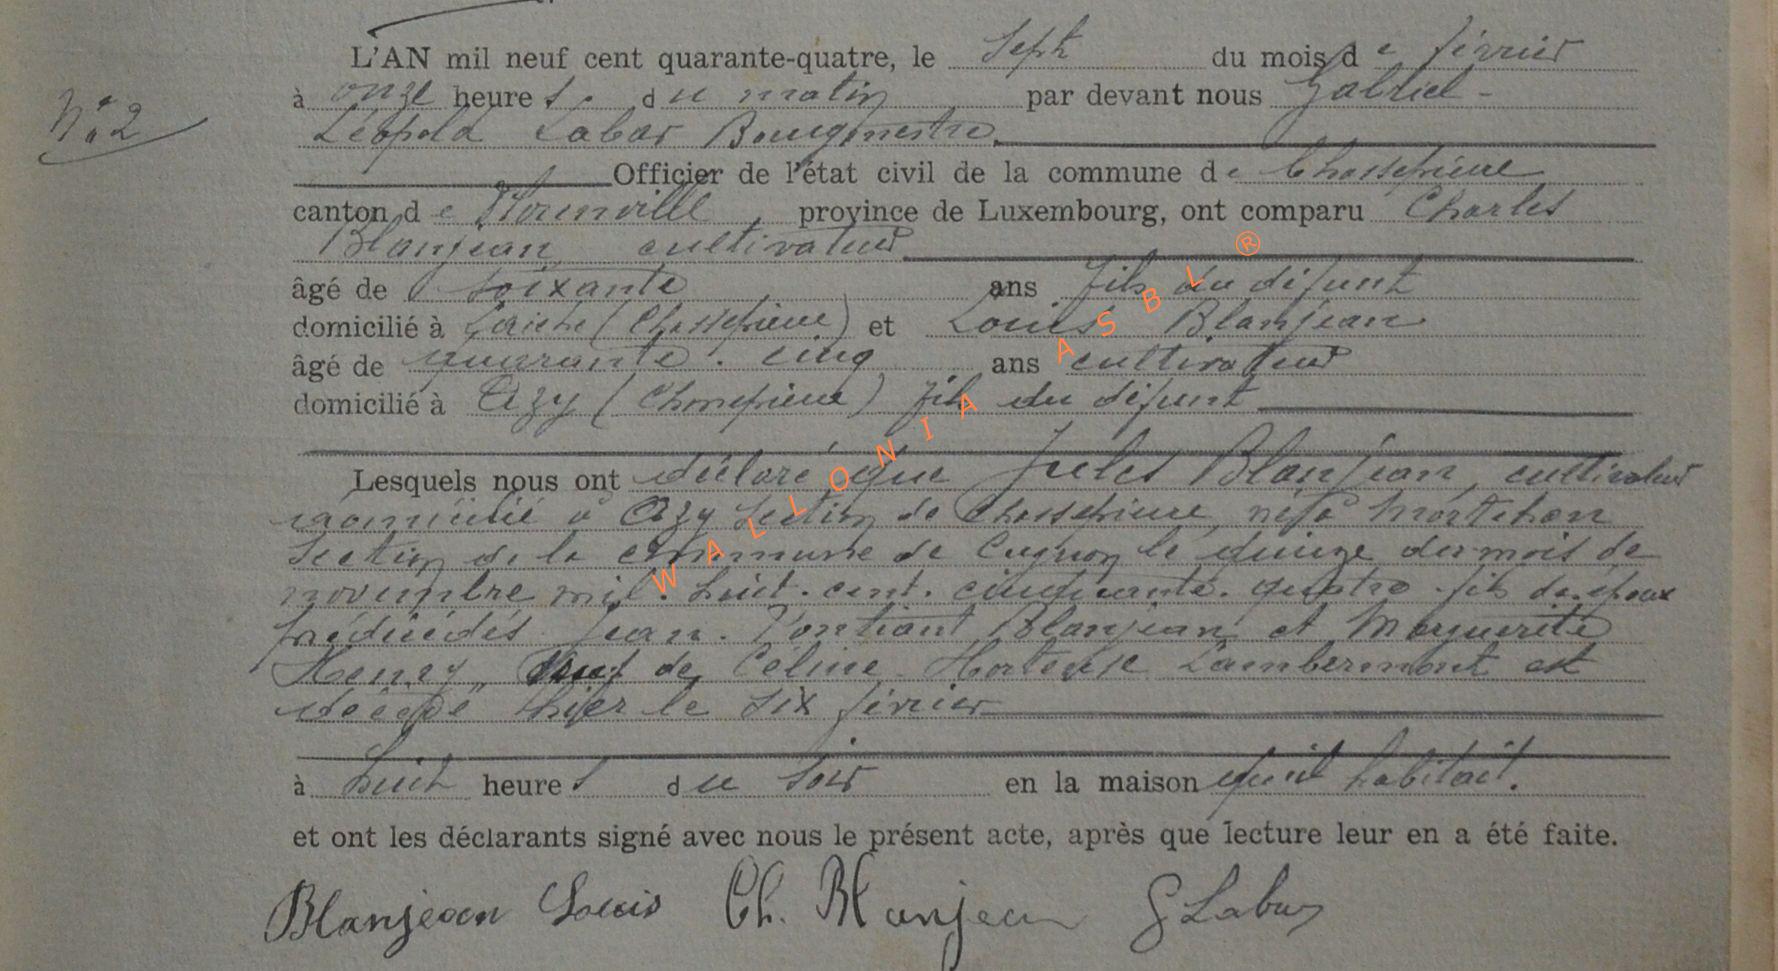 L'AN mil neuf cent quarante-quatre, le sept du mois de février
N° 2
à onze heures. du matin par devant nous Gabriel-
Léopold Labar Bourgmestre.
Officier de l'état civil de la commune de Chassepierre
canton de Florenville, province de Luxembourg, ont comparu Charles
Blanjean, cultivateur
âgé de soixante ans fils du défunt
domicilié à Laiche (Chassepierre) et Louis Blanjean
âgé de quarante-cinq ans cultivateur
domicilié à Azy (Chassepierre) fils du défunt
Lesquels nous ont déclaré que Jules Blanjean, cultivateur
domicilié à Azy section de Chassepierre, né à Mortehan
section de la commune de Cugnon le quinze du mois de
novembre mil. huit. cent. cinquante. quatre fils des époux
prédécédés Jean. Pontiant Blanjean et Marguerite
Henry, veuf de Céline Hortense Lambermont est
décédé hier le six février
à huit heures du soir en la maison qu'il habitait.
et ont les déclarants signé avec nous le présent acte, après que lecture leur en a été faite.
Blanjean Louis Ch. Blanjean G Labar
WALLONIA ASBL ®